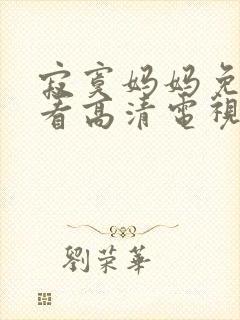 寂寞妈妈免
看高清電視
劉荣華